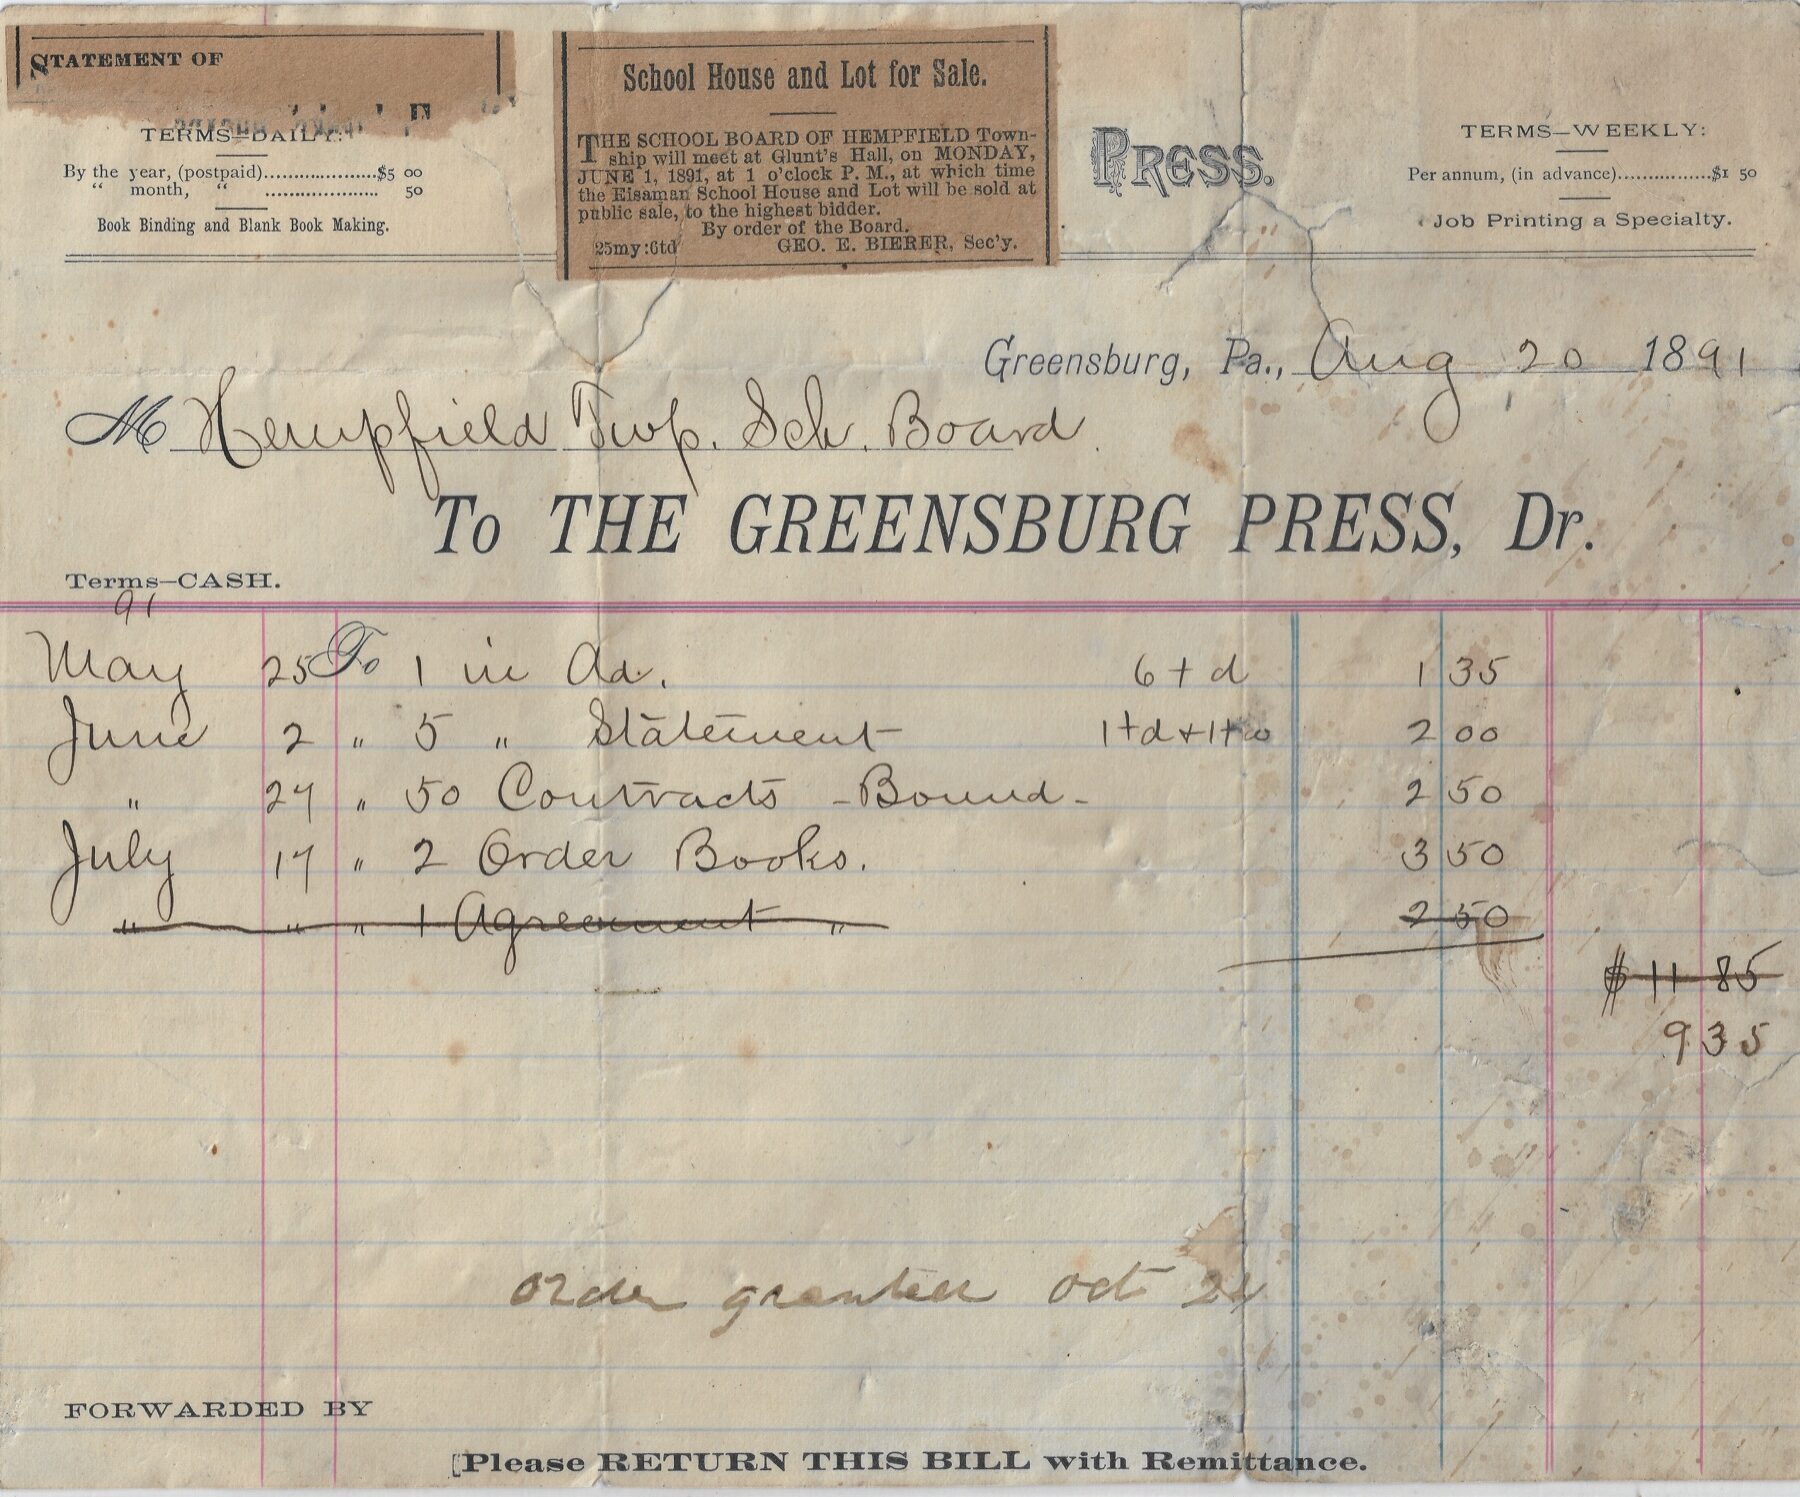 STATEMENT OF
TERMS—DAILY:
By the year, (postpaid)...................$5 00
“ month, “ .................... 50
Book Binding and Blank Book Making.
School House and Lot for Sale.
THE SCHOOL BOARD OF HEMPFIELD Town-
ship will meet at Glunt's Hall, on MONDAY,
JUNE 1, 1891, at 1 o'clock P. M., at which time
the Eisaman School House and Lot will be sold at
public sale, to the highest bidder.
By order of the Board.
25my:6td GEO. E. BIERER, Sec'y.
PRESS.
TERMS—WEEKLY:
Per annum, (in advance)................$1 50
Job Printing a Specialty.
Greensburg, Pa., Aug 20 1891
M Hempfield Twp. Sch. Board.
To THE GREENSBURG PRESS, Dr.
Terms—CASH.
91
May 25 To 1 in Ad. 6 t d 1 35
June 2 " 5 " Statement 1td+1tw 2 00
" 27 " 50 Contracts - Bound - 2 50
July 17 " 2 Order Books. 3 50
" " " 1 Agreement " 2 50
$ 11 85
9 35
order granted oct 24
FORWARDED BY
[Please RETURN THIS BILL with Remittance.